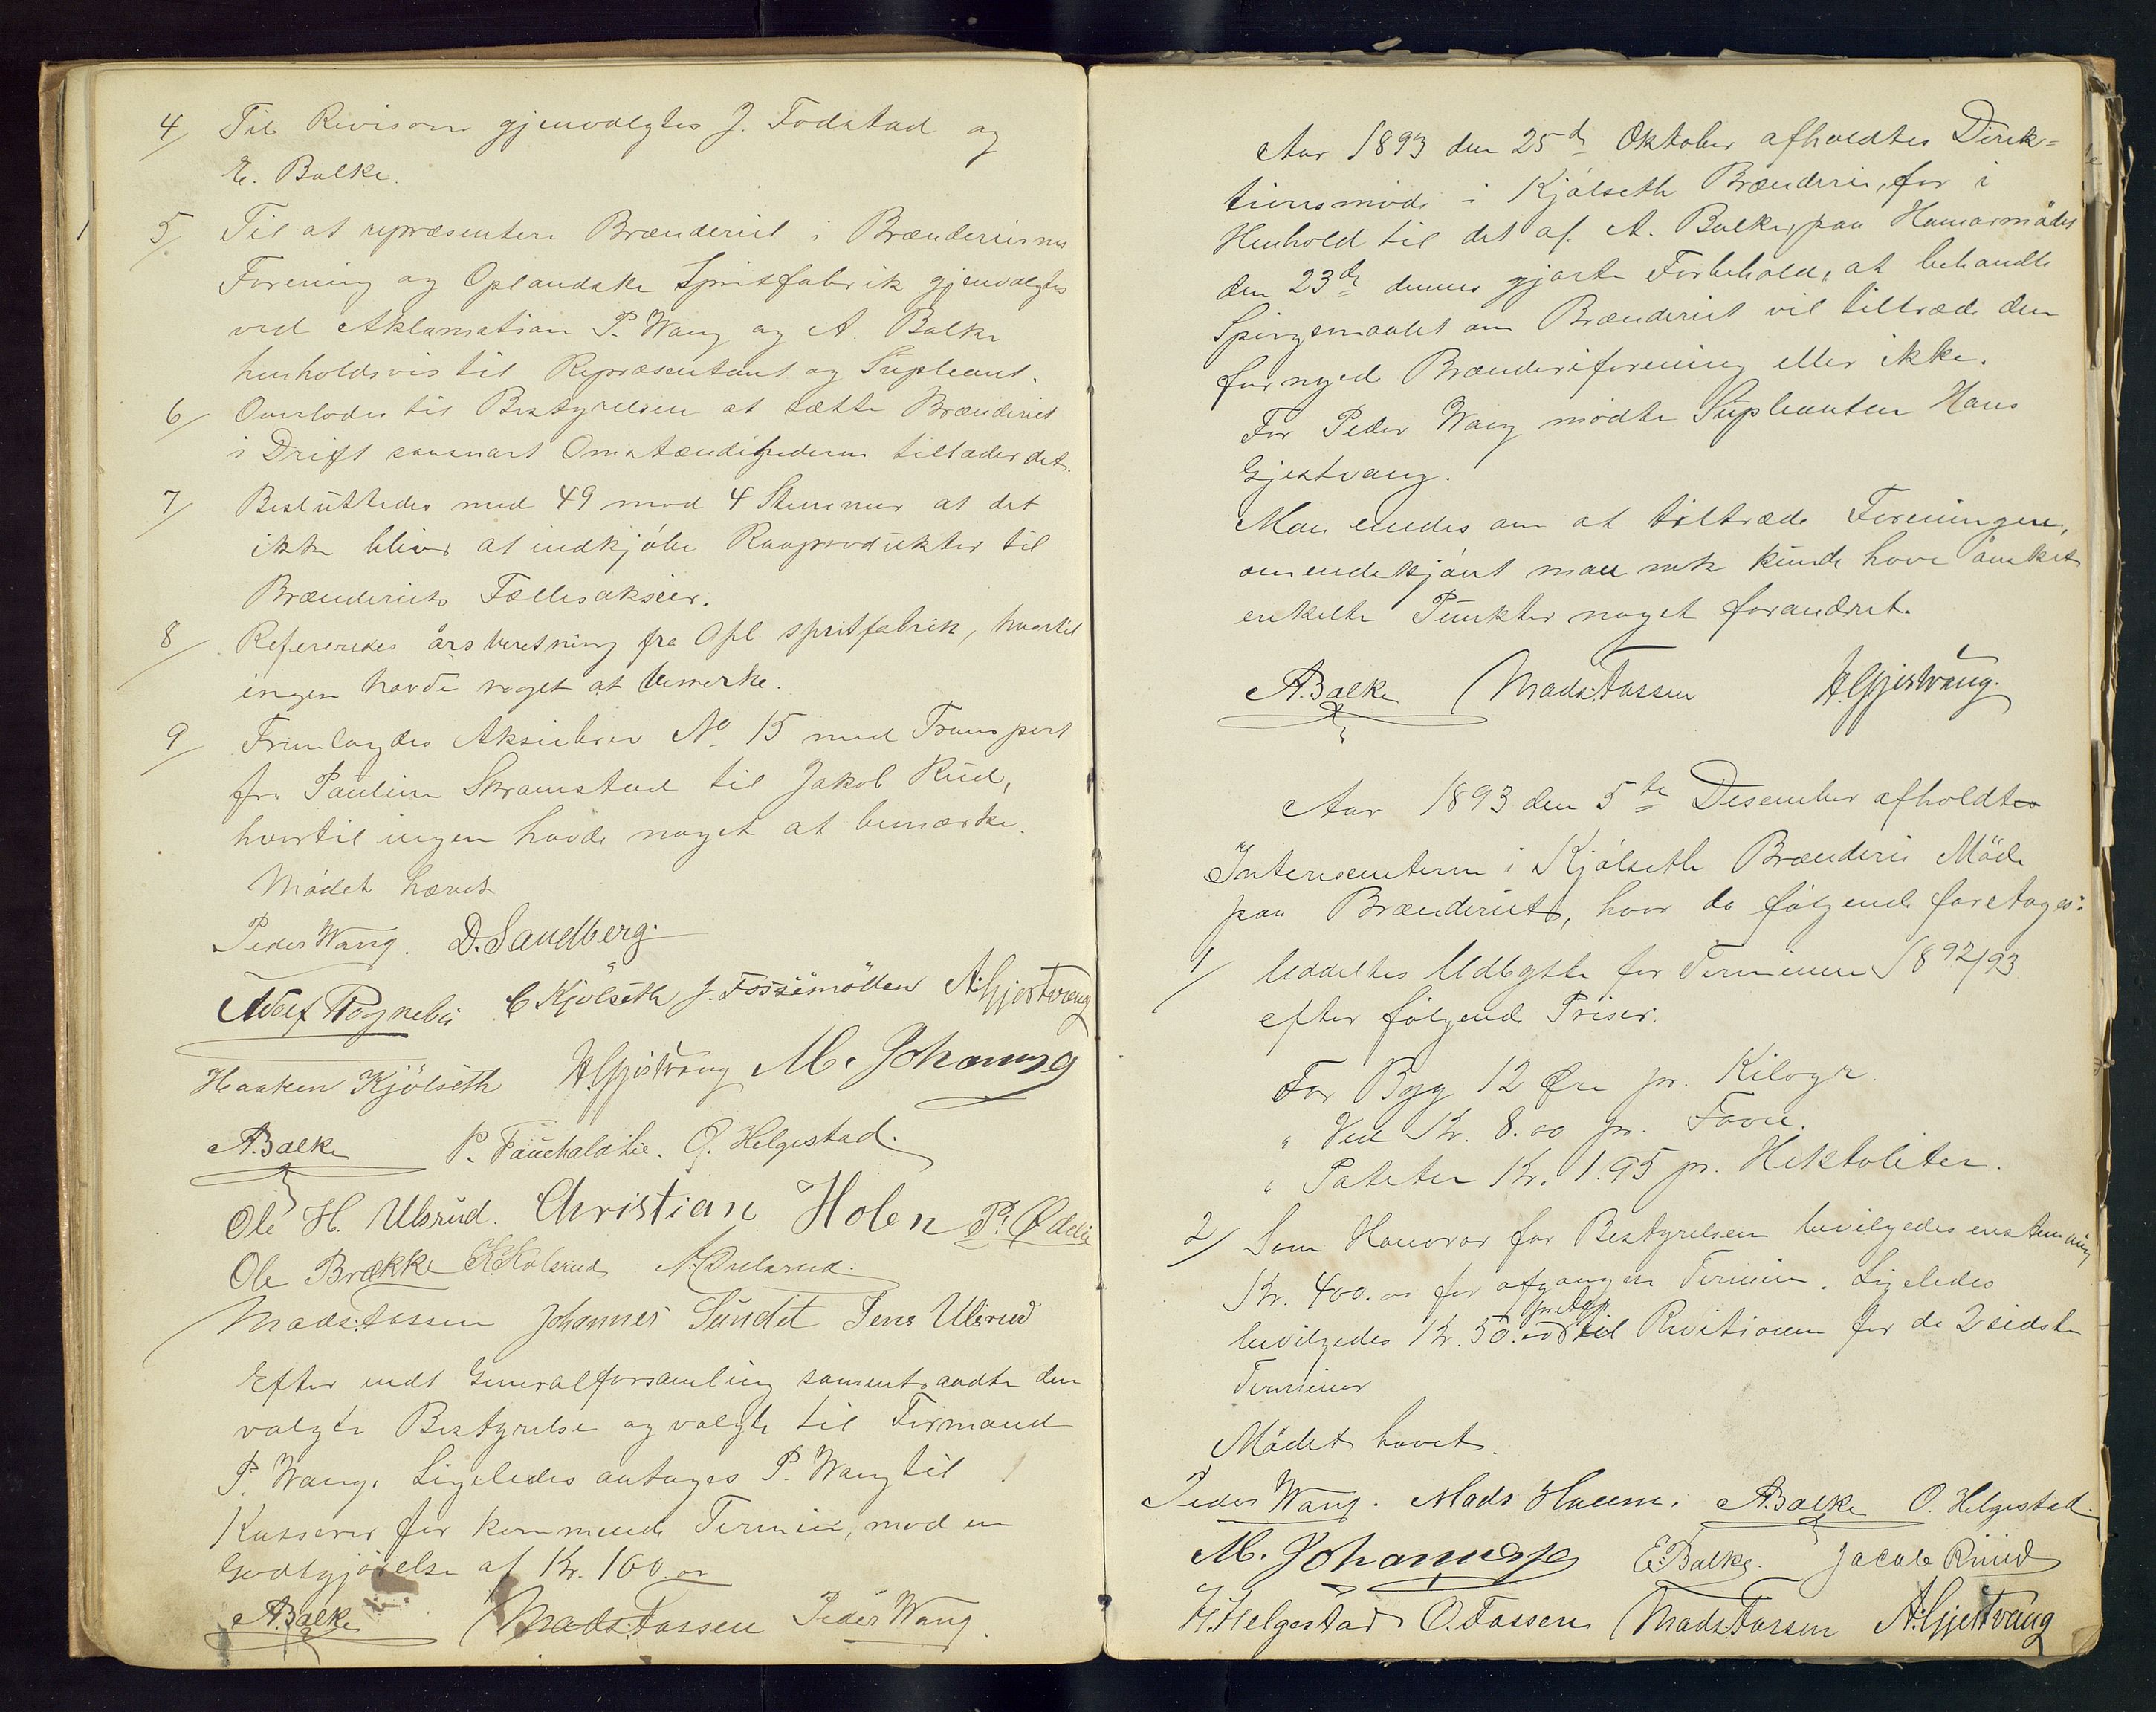 4/ Til Revisorer gjenvalgtes J. Fodstad og
E. Balke.
5/ Til at repræsentere Brænderiet i Brænderiernes
Forening og Oplandske Spritfabrik gjenvalgtes
ved Aklamation P. Wang og A. Balke
henholdsvis til Repræsentant og Supleant.
6/ Overlodes til Bestyrelsen at sætte Brænderiet
i Drift saasnart Omstændighederne tillader det.
7/ Besluttedes med 49 mod 4 Stemmer at det
ikke bliver at indkjøbe Raaprodukter til
Brænderiets Fællesaksier.
8/ Refereredes årsberetning fra Opl spritfabrik, hvortil
ingen havde noget at bemerke.
9/ Fremlagdes Aksiebrev No 15 med Transport
fra Pauline Skramstad til Jakob Rud,
hvortil ingen havde noget at bemærke.
Mødet hævet
Peder Wang. D. Sandberg.
Adolf Rognebÿ C Kjölseth J. Fossemöllen A. Gjestvang
Haaken Kjölseth H. Gjestvang M. Johannes
A. Balke P. Fauchalslie. O. Helgestad.
Ole H. Ulsrud. Christian Holen P. Ødelie
Ole Brække K. Kolsrud
Mads Fossen Johannes Sundet Jens Ulsrud
Efter endt Generalforsamling samentraadte den
valgte Bestyrelse og valgte til Formand
P. Wang. Ligeledes antages P. Wang til
Kasserer for kommende Termin, mod en
Godtgjørelse af Kr. 100.00
A. Balke Mads. Fossen Peder Wang.
Aar 1893 den 25de Oktober afholdtes Direk=
tionsmøde i Kjølseth Brænderi, for i
Henhold til det af A. Balke, paa Hamarmødet
den 23de dennes gjorte Forbehold, at behandle
Spørgsmaalet om Brænderiet vil tiltræde den
fornyede Brænderiforening eller ikke.
For Peder Wang mødte Supleanten Hans
Gjestvang.
Man enedes om at tiltræde Foreningen,
omendskjønt man nok kunde have ønsket
enkelte Punkter noget forandret.
A. Balke Mads. Fossen H. Gjestvang.
Aar 1893 den 5te Desember afholdtes
Interesenterne i Kjølseth Brænderi Møde
paa Brænderiet, hvor da følgende foretages:
1/ Uddeltes Udbytte for Terminen 1892/93
efter følgende Priser.
For Byg 12 Øre pr. Kilogr.
" Ved Kr. 8.00 pr. Favn.
" Poteter Kr. 1.95 pr. Hektoliter.
2/ Som Honorar for Bestyrelsen bevilgedes enstemmig
Kr. 400.00 for afgangne Termin. Ligeledes
bevilgedes Kr. 50.00 til Revisionen for de 2 sidste
Terminer
Mødet hævet.
Peder Wang. Mads A. Balke O. Helgestad.
M. Johannes E. Balke. Jacob Ruud
H. Helgestad O. Fossen Mads. Fossen A. Gjestvang